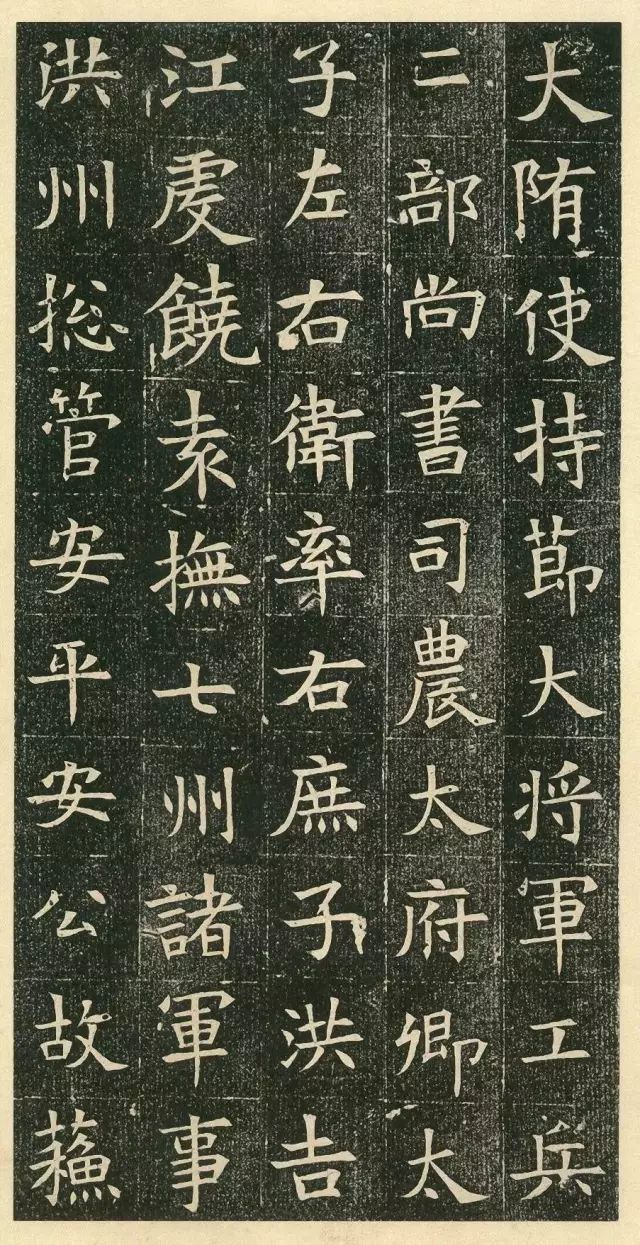 大隋使持節大将軍工兵
二部尚書司農太府卿太
子左右衛率右庶子洪吉
江虔饒袁撫七州諸軍事
洪州揔管安平安公故蘓